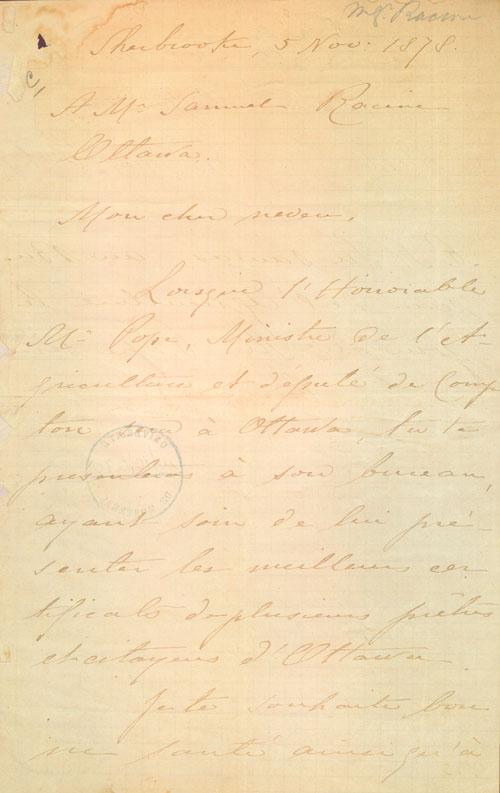 Mgr Racine
Sherbrooke, 5 Nov: 1878.
A Mr Samuel Racine
Ottawa.
Mon cher neveu,
Lorsque l'Honorable
Mr Pope, Ministre de l'A-
griculture et député de Comp
ton sera à Ottawa, tu te
présenteras à son bureau,
ayant soin de lui pré-
senter les meilleurs cer
tificats de plusieurs prêtres
et citoyens d'Ottawa
Je te souhaite bon
ne santé ainsi qu'à